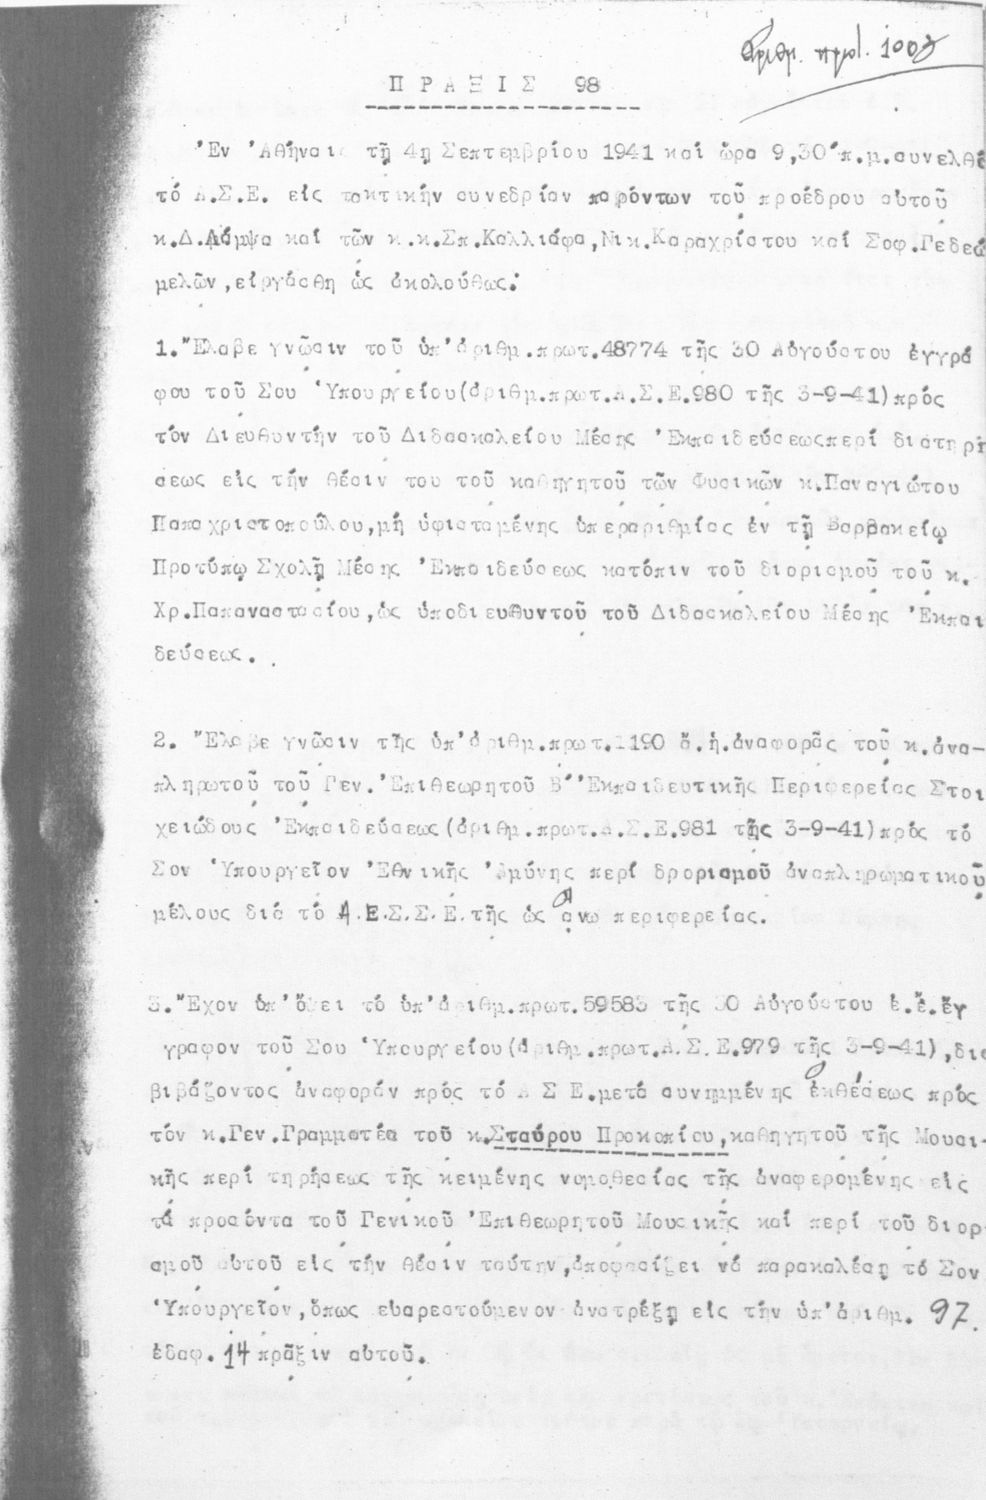 Ἀριθμ. πρωτ.
ΠΡΑΞΙΣ 98
Ἐν Ἀθήναις τῇ 4η Σεπτεμβρίου 1941 καί ὥρα 9,30 π.μ.συνελθό
τό Α.Σ.Ε. εἰς τακτικήν συνεδρίαν παρόντων τοῦ προέδρου αὐτοῦ
κ.Δ.Λάμψα καί τῶν κ.κ.Σπ.Καλλιάφα,Νικ.Καραχρίστου καί Σοφ.Γεδεώ
μελῶν,εἰργάσθη ὡς ἀκολούθως:
1.Ἔλαβε γνῶσιν τοῦ ὑπ'ἀριθμ.πρωτ.48774 τῆς 30 Αὐγούστου ἐγγρά
φου τοῦ Σου Ὑπουργείου(ἀριθμ.πρωτ.Α.Σ.Ε.980 τῆς 3-9-41)πρός
τόν Διευθυντήν τοῦ Διδασκαλείου Μέσης Ἐκπαιδεύσεωςπερί διατηρή
σεως εἰς τήν θέσιν του τοῦ καθηγητοῦ τῶν Φυσικῶν κ.Παναγιώτου
Παπαχριστοπούλου,μή ὑφισταμένης ὑπεραριθμίας ἐν τῇ Βαρβακείῳ
Προτύπῳ Σχολῇ Μέσης Ἐκπαιδεύσεως κατόπιν τοῦ διορισμοῦ τοῦ κ.
Χρ.Παπαναστασίου,ὡς ὑποδιευθυντοῦ τοῦ Διδασκαλείου Μέσης Ἐκπαι
δεύσεως.
2. Ἔλαβε γνῶσιν τῆς ὑπ'ἀριθμ.πρωτ.1190 ἔ.ἡ.ἀναφορᾶς τοῦ κ.ἀνα-
πληρωτοῦ τοῦ Γεν.Ἐπιθεωρητοῦ Β΄Ἐκπαιδευτικῆς Περιφερείας Στοι
χειώδους Ἐκπαιδεύσεως(ἀριθμ.πρωτ.Α.Σ.Ε.981 τῆς 3-9-41)πρός τό
Σον Ὑπουργεῖον Ἐθνικῆς Ἀμύνης περί δρορισμοῦ ἀναπληρωματικοῦ
μέλους διά τό Α.Ε.Σ.Σ.Ε.τῆς ὡς ἄνω περιφερείας.
3.Ἔχον ὑπ'ὄψει τό ὑπ'ἀριθμ.πρωτ.59583 τῆς 30 Αὐγούστου ἐ.ἔ.ἔγ
γραφον τοῦ Σου Ὑπουργείου(ἀριθμ.πρωτ.Α.Σ.Ε.979 τῆς 3-9-41),δια
βιβάζοντος ἀναφοράν πρός τό Α Σ Ε.μετά συνημμένης ἐκθέσεως πρός
τόν κ.Γεν.Γραμματέα τοῦ κ.Σταύρου Προκοπίου,καθηγητοῦ τῆς Μουσι-
κῆς περί τηρήσεως τῆς κειμένης νομοθεσίας τῆς ἀναφερομένης εἰς
τά προσόντα τοῦ Γενικοῦ Ἐπιθεωρητοῦ Μουσικῆς καί περί τοῦ διορ-
σμοῦ αὐτοῦ εἰς τήν θέσιν ταύτην,ἀποφασίζει νά παρακαλέσῃ τό Σον
Ὑπουργεῖον,ὅπως εὐαρεστούμενον ἀνατρέξῃ εἰς τήν ὑπ'ἀριθμ. 97.
ἐδαφ.14 πρᾶξιν αὐτοῦ.